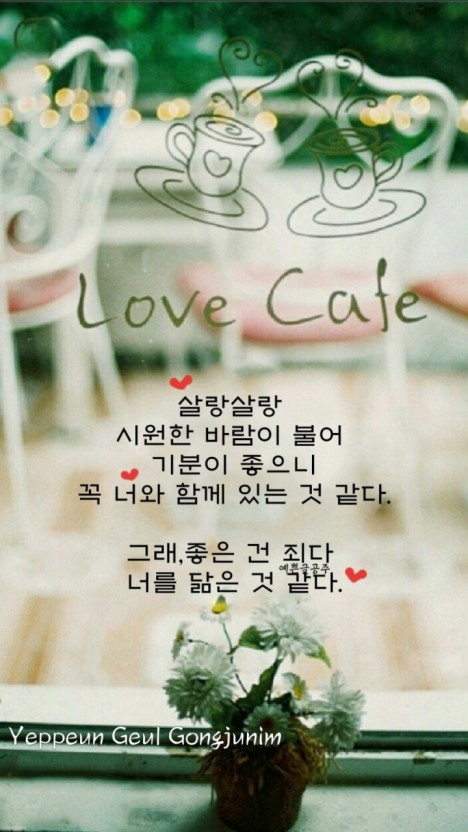 Love Cafe
살랑살랑
시원한 바람이 불어
기분이 좋으니
꼭 너와 함께 있는 것 같다.
그래,좋은 건 죄다
너를 닮은 것 같다.
예쁜글공주
Yeppeun Geul Gongjunim